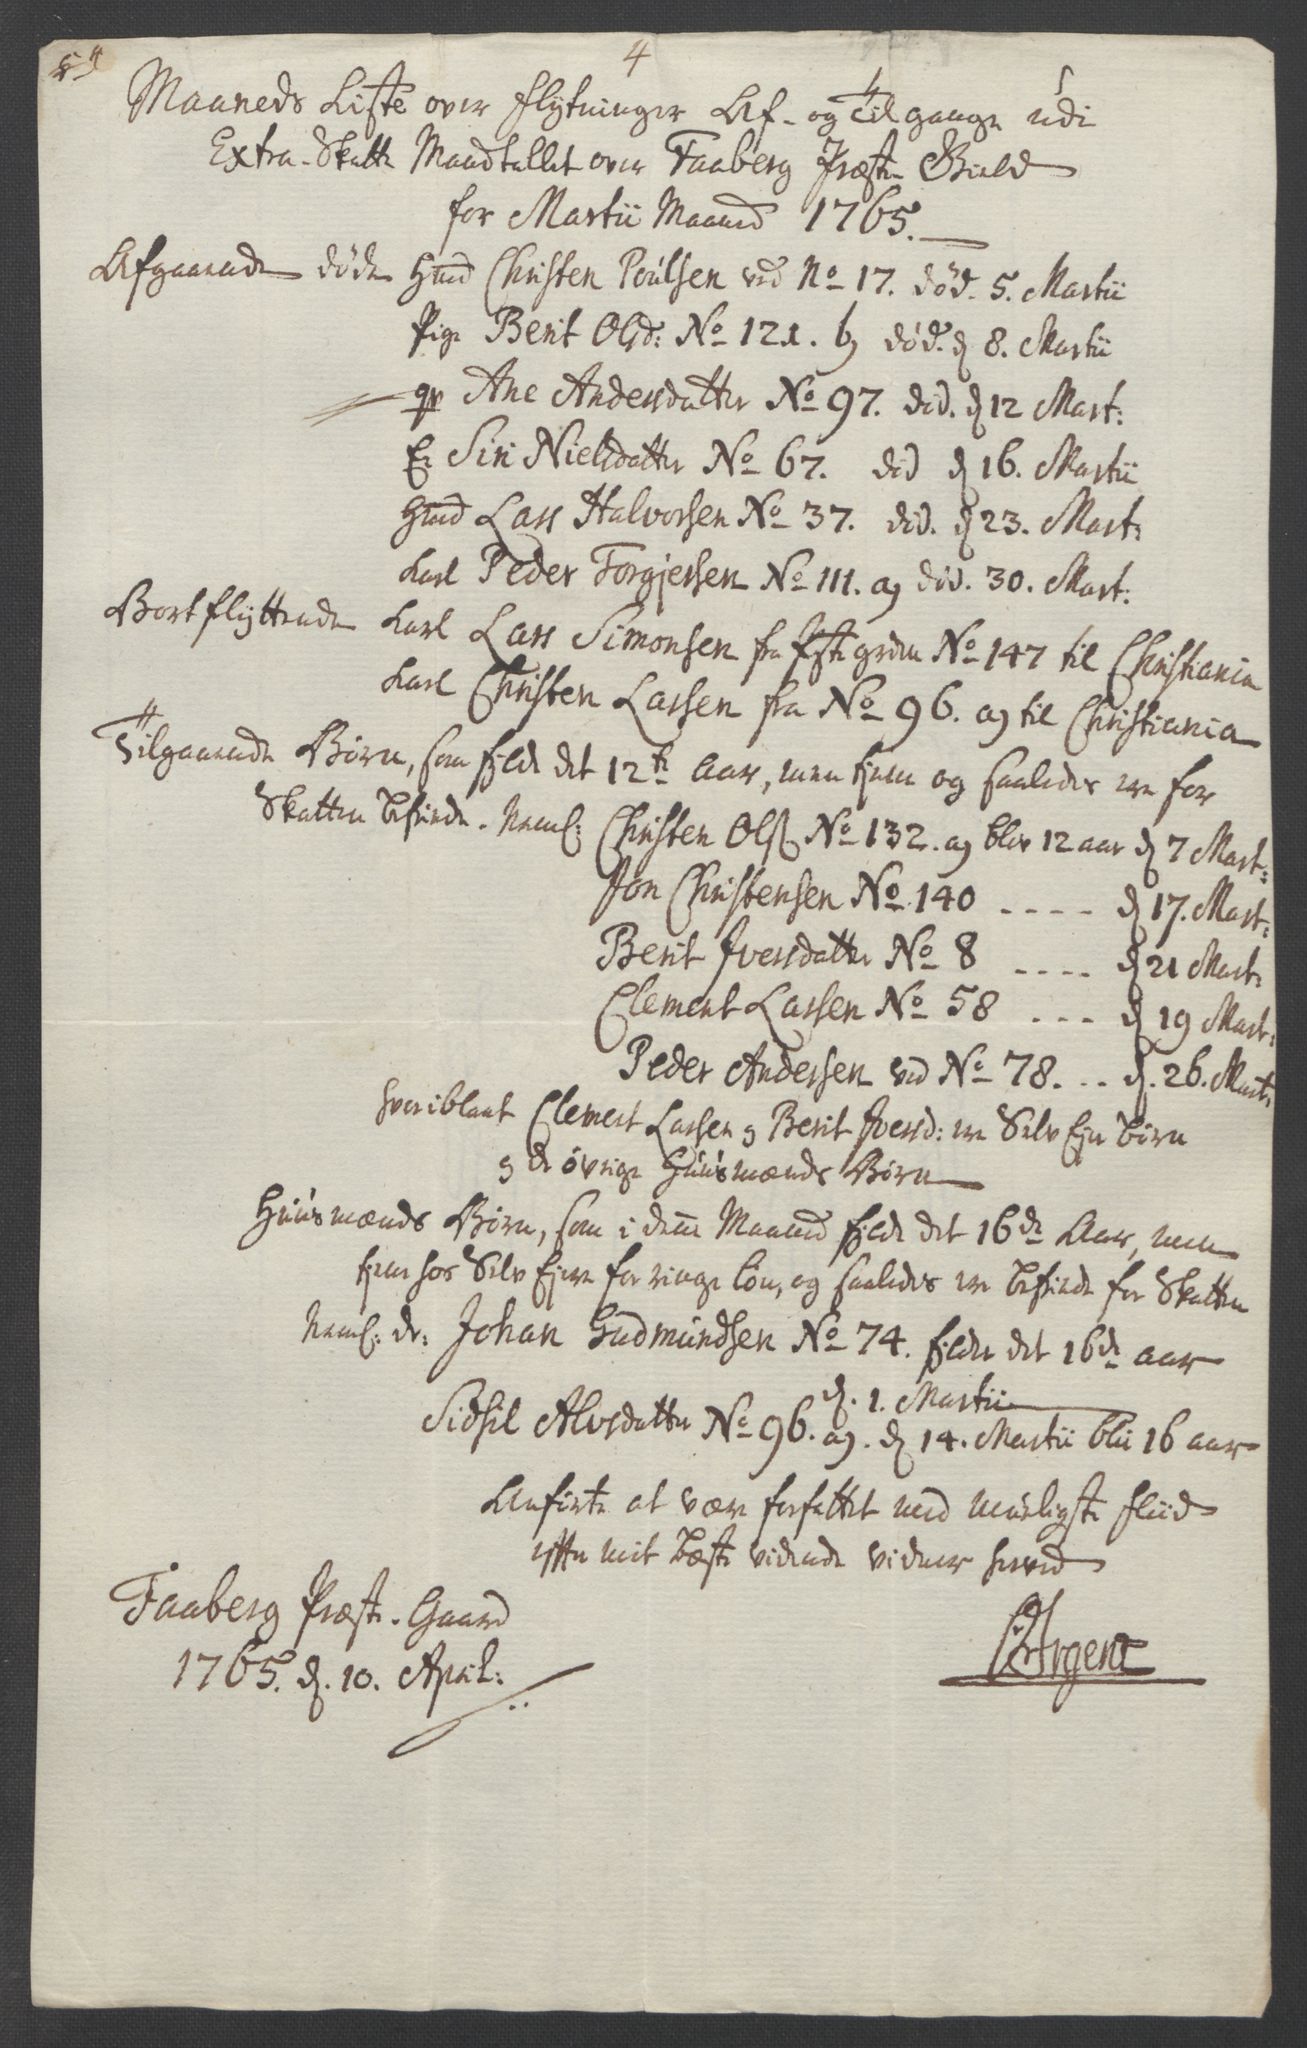 4
Maaneds Liste over flytninger Af- og Tilgange udi
Extra-Skatte Mandtallet over Faaberg Præste Gield
for Martii Maaned 1765.
Afgaaende døde Hmd Christen Poulsen ved No 17. død. 5. Martii
Pige Berit Olsd: No 121. b) død. d 8. Martii
qv Ane Andersdatter No 97. død. d 12 Mart:
E: Siri Nielsdatter No 67. død d 16. Martii
Hmd Lars Halvorsen No 37. død. d 23. Mart:
karl Peder Torgjersen No 111. a) død. 30. Mart:
Bortflyttende karl Lars Simonsen fra Pstegrden No 147 til Christiania
karl Christen Larsen fra No 96. a) til Christiania
Tilgaaende Børn, som fylde det 12te Aar, men tjene og saaledes ere for
Skatten befriede. Neml: Christen Ols. No 132. a) blev 12 aar d 7 Mart:
Jon Christensen No 140 - - - - d 17. Mart:
Berit Iversdatter No 8 - - - - d 21 Mart:
Clement Larsen No 58 - - - d 19 Mart:
Peder Andersen ved No 78. - - d. 26. Mart:
hvoriblant Clement Larsen og Berit Iversd: ere Selv Ejer børn
og de øvrige Huusmænds Børn
Huusmænds Børn, som i denne Maaned fylde det 16de Aar, men
tjene hos Selv Ejere for ringe løn, og saaledes ere befriede for Skatten
Neml: dr: Johan Gudmundsen No 74. fylder det 16de aar
d. 1. Martii
Sidsil Alvsdatter No 96. a). d 14. Martii blir 16 aar
Anførte at være forfattet med mueligste fliid
efter mit beste vidende vidner herved
Faaberg Præste-Gaard
1765. d. 10. April:
Irgens